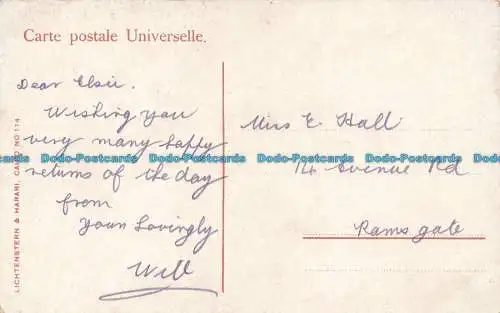 Carte postale Universelle.
Dear Elsie.
Wishing you
very many happy
returns of the day
from
yours lovingly
Will
Miss E. Hall
14 Avenue Rd
Ramsgate
LICHTENSTERN & HARARI, CAIRO NO 114
Dodo-Postcards Dodo-Postcards Dodo-Postcards Dodo-Postcards Dodo-Postcards Dodo-Postcards